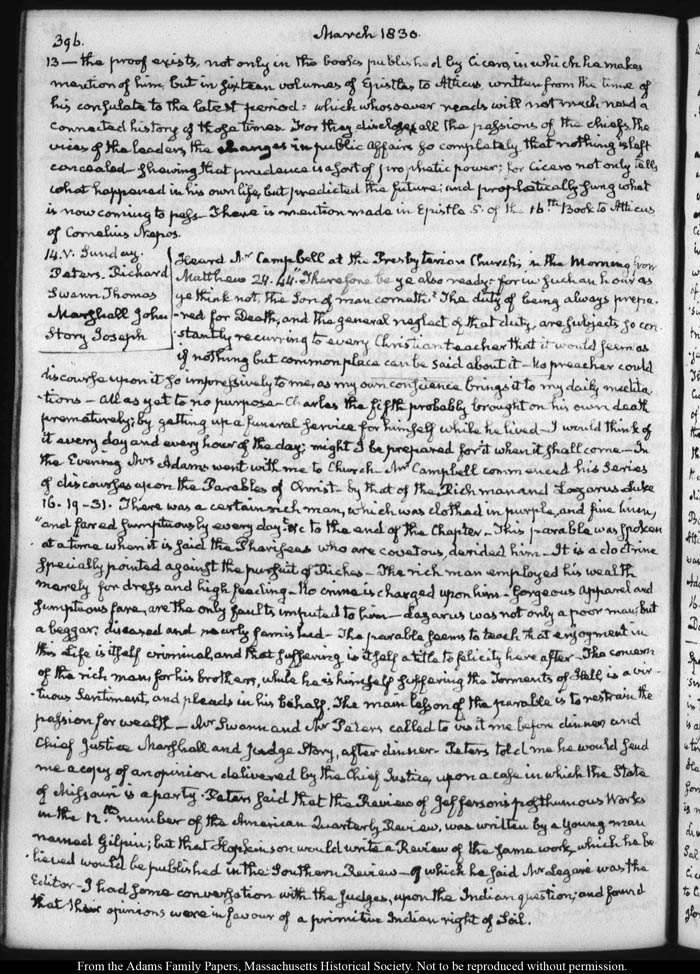 396.
March 1830.
13 — the proof exists, not only in the books published by Cicero, in which he makes
mention of him, but in sixteen volumes of Epistles to Atticus, written from the time of
his consulate to the latest period: which whosoever reads will not much need a
connected history of those times. For they disclose all the passions of the chiefs, the
vices of the leaders, the changes in public affairs so completely that nothing is left
concealed — shewing that prudence is a sort of prophetic power; for Cicero not only tells
what happened in his own life, but predicted the future; and prophetically sung what
is now coming to pass — There is mention made in Epistle 5. of the 16th Book to Atticus
of Cornelius Nepos.
14. V. Sunday.
Peters. Richard
Swann Thomas
Marshall John
Story Joseph
Heard Mr Campbell at the Presbyterian Church, in the Morning from
Matthew 24. 44. "Therefore be ye also ready: for in such an hour as
ye think not, the Son of man cometh." The duty of being always prepa-
-red for Death, and the general neglect of that duty, are subjects so con-
-stantly recurring to every Christian teacher that it would seem as
if nothing but common place can be said about it — No preacher could
discourse upon it so impressively to me, as my own conscience brings it to my daily medita-
-tions — all as yet to no purpose — Charles the fifth probably brought on his own death
prematurely, by getting up a funeral service for himself while he lived — I would think of
it every day and every hour of the day; might I be prepared for it when it shall come — In
the Evening Mrs Adams went with me to Church — Mr Campbell commenced his Series
of discourses upon the Parables of Christ — by that of the Rich man and Lazarus Luke
16. 19-31. There was a certain rich man, which was clothed in purple, and fine linen,
"and fared sumptuously every day" &c to the end of the Chapter — This parable was spoken
at a time when it is said the Pharisees who are covetous, derided him — It is a doctrine
specially pointed against the pursuit of Riches — The rich man employed his wealth
merely for dress and high feeding — No crime is charged upon him — Gorgeous apparel and
sumptuous fare, are the only faults imputed to him — Lazarus was not only a poor man, but
a beggar; diseased and nearly famished — The parable seems to teach that enjoyment in
this Life is itself criminal, and that suffering is itself a title to felicity hereafter — The concern
of the rich man for his brothers, while he is himself suffering the Torments of Hell, is a vir-
-tuous Sentiment, and pleads in his behalf. The main lesson of the parable is to restrain the
passion for wealth — Mr Swann and Mr Peters called to visit me before dinner, and
Chief Justice Marshall and Judge Story, after dinner — Peters told me he would send
me a copy of an opinion delivered by the Chief Justice, upon a case in which the State
of Missouri is a party. Peters said that the Review of Jefferson's posthumous Works
in the 12th number of the American Quarterly Review, was written by a young man
named Gilpin; but that Hopkinson would write a Review of the same work, which he be-
-lieved would be published in the Southern Review — of which he said Mr Legaré was the
Editor — I had some conversation with the Judges, upon the Indian question; and found
that their opinions were in favour of a primitive Indian right of Soil.
From the Adams Family Papers, Massachusetts Historical Society. Not to be reproduced without permission.